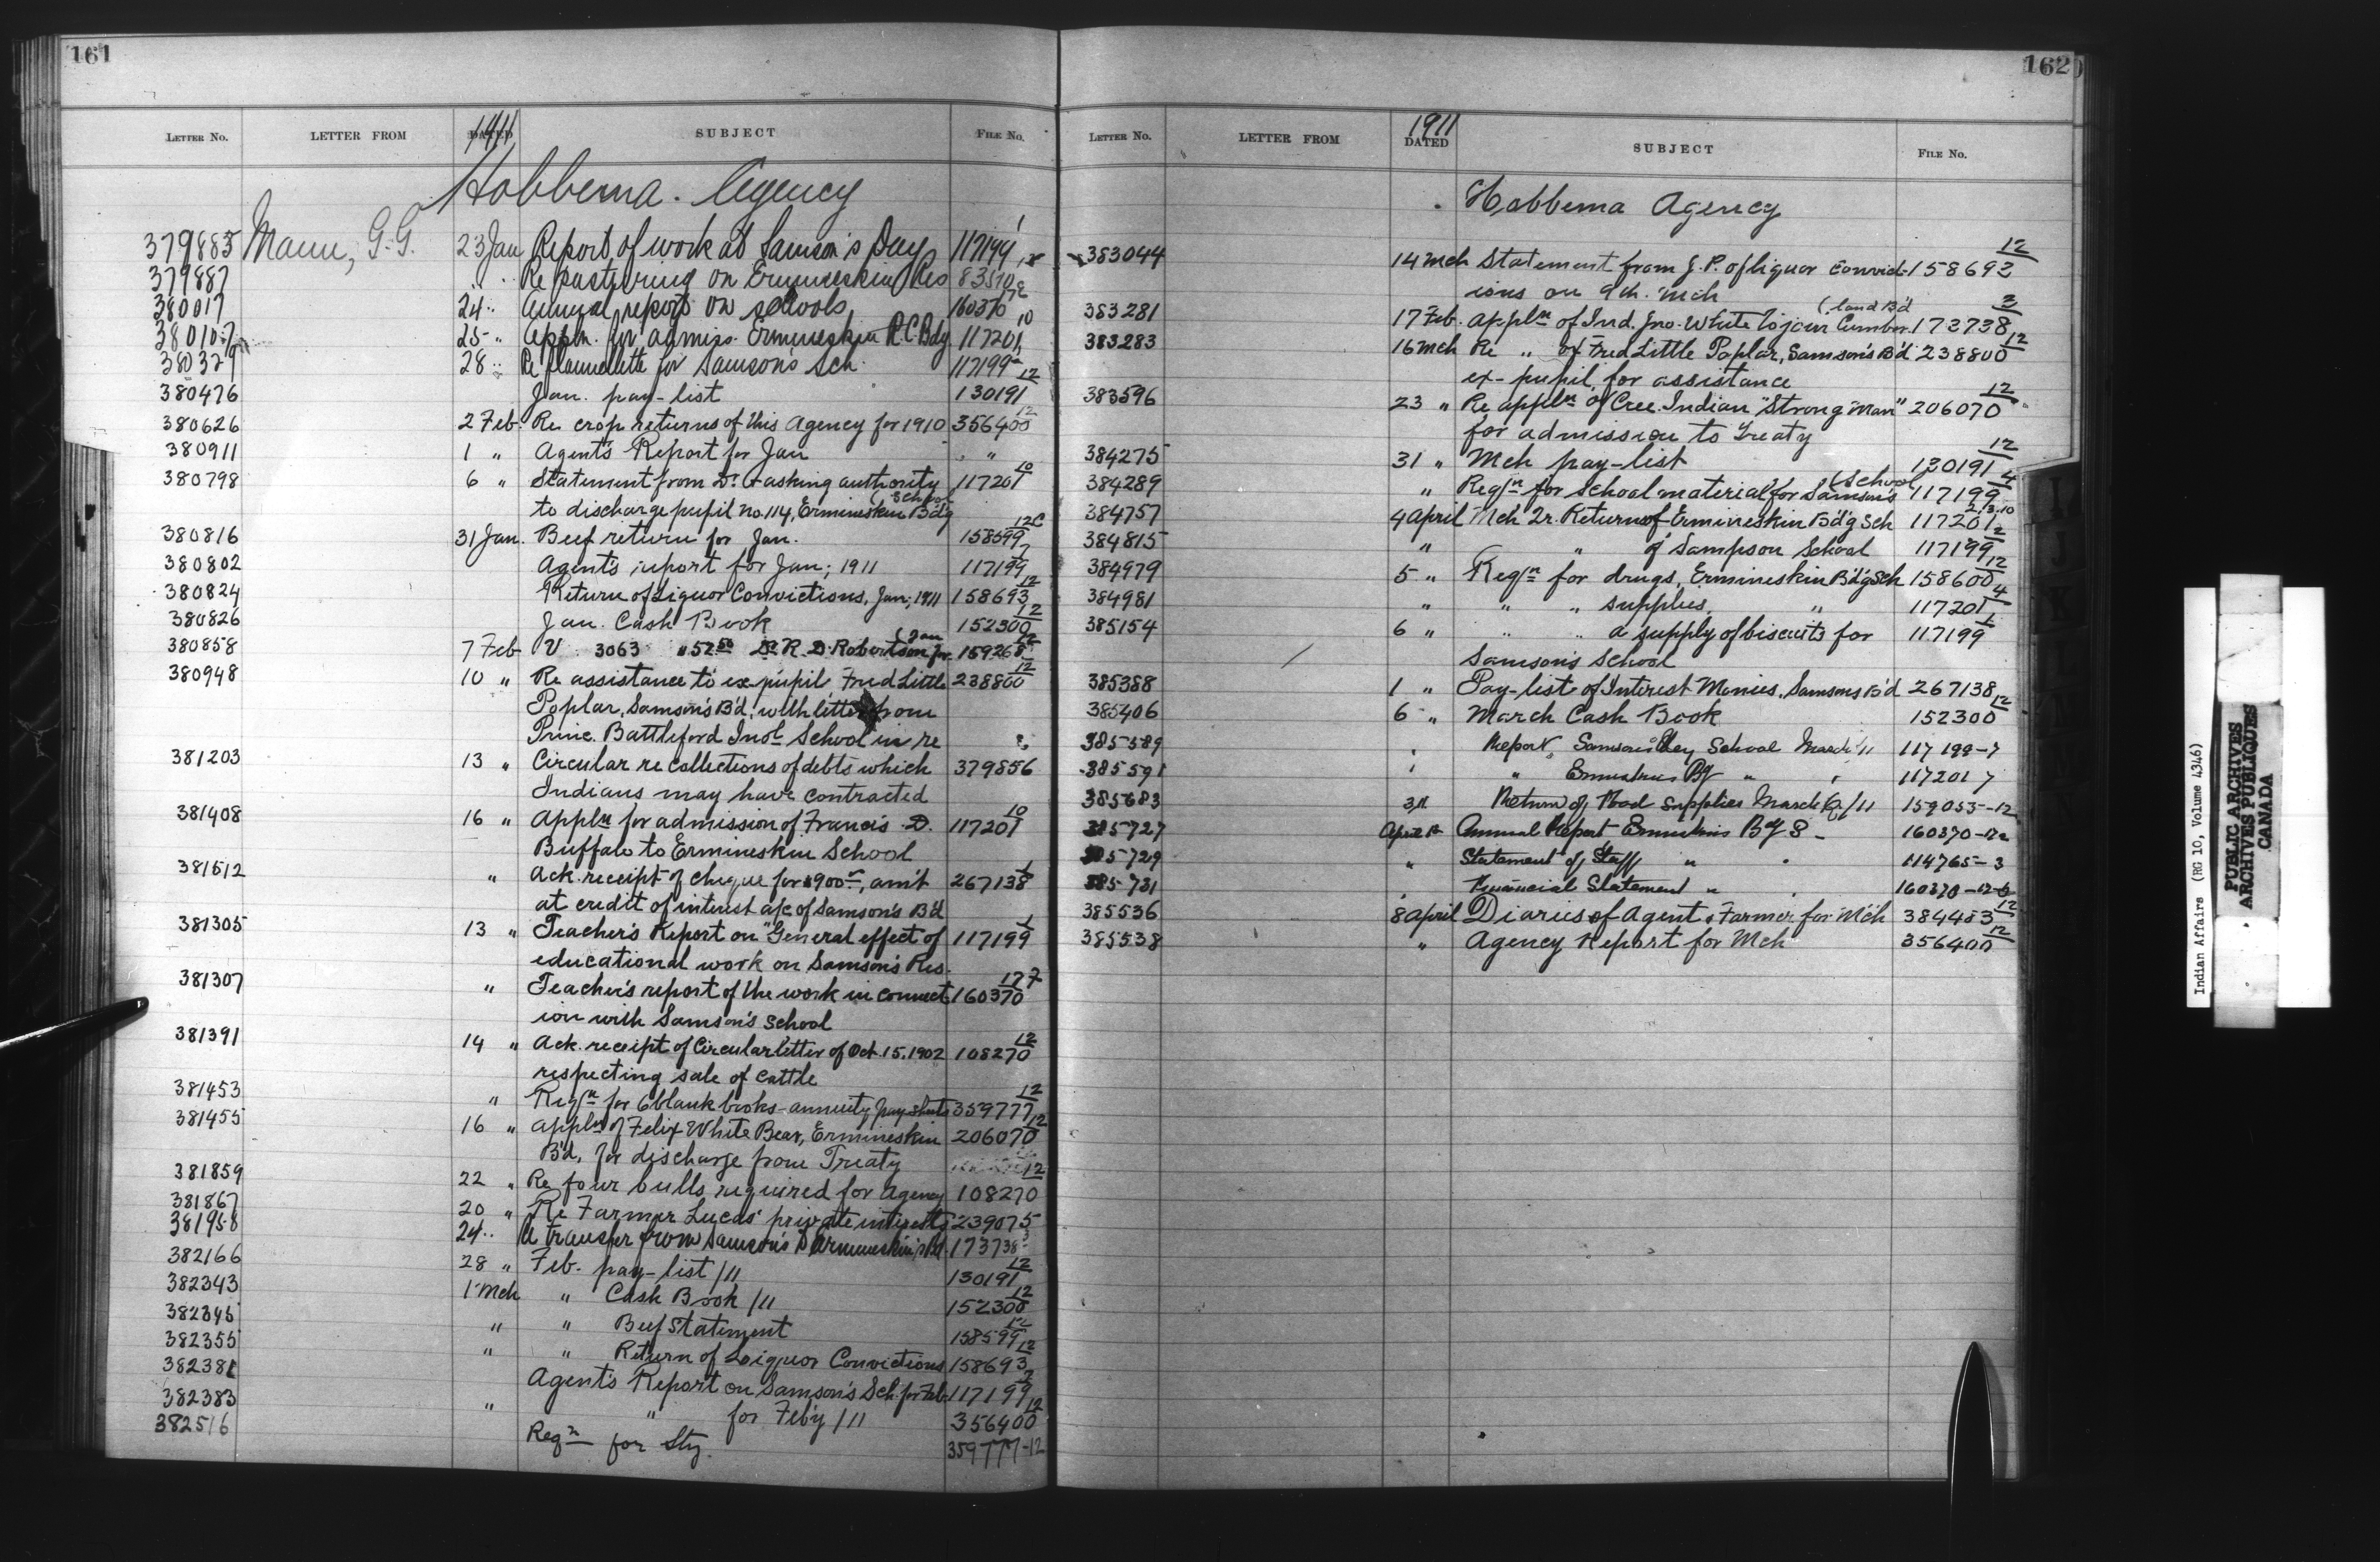 161
LETTER NO. LETTER FROM DATED 1911 SUBJECT FILE NO.
Hobbema Agency
379885 Mann, G.G. 23 Jan Report of work at Samson's Day 117199 1
379887 " Re pasturing on Ermineskin Res 83510
380017 24 " Annual report on schools 160370
38010 25 " Appln. for admiss. Ermineskin R.C. Bdg 117201 10
380379 28 " Re flannelette for Samson's Sch. 117199
380476 Jan. pay-list 130191 12
380626 2 Feb. Re crop returns of this Agency for 1910 356400 12
380911 1 " Agent's Report for Jan " "
380798 6 " Statement from Dr. asking authority 117201 10
to discharge pupil no. 114, Ermineskin Bd'g (School
380816 31 Jan. Beef return for Jan. 158599 12C
380802 Agent's report for Jan; 1911 117199 7
380824 Return of Liquor Convictions, Jan; 1911 158693 12
380826 Jan. Cash Book 152300 12
380858 7 Feb V 3063 52 50 Dr. R. D. Robertson for (Jan 159268 12
380948 10 " Re assistance to ex-pupil Fred Little 238800 12
Poplar, Samson's B'd, with letter from
Princ. Battleford Ind'l School in re
381203 13 " Circular re collections of debts which 379856
Indians may have contracted
381408 16 " Appln for admission of Francis D. 117201 10
Buffalo to Ermineskin School
381512 " Ack. receipt of cheque for $900, am't 267138
at credit of interest a/c of Samson's B'd
381305 13 " Teacher's Report on "General effect of 117199 1
educational work on Samson's Res.
381307 " Teacher's report of the work in connect 160370 12 7
ion with Samson's School
381391 14 " Ack. receipt of Circular letter of Oct. 15, 1902 108270 12
respecting sale of cattle
381453 " Reqn for 6 blank books - annuity pay sheets 359777 12
381455 16 " appln of Felix White Bear, Ermineskin 206070 12
B'd, for discharge from Treaty
381859 22 " Re four bulls required for Agency 108270 12
381867 20 " Re Farmer Lucas' private interests 239075
381958 24 " Re transfer from Samson's to Ermineskin's Bd. 173738 3
382166 28 " Feb. pay-list /11 130191 12
382343 1 Mch " Cash Book /11 152300 12
382345 " " Beef Statement 158599 12
382355 " " Return of Liquor Convictions 158693 12
382381 Agent's Report on Samson's Sch. for Feb. 117199 7
382383 " " for Feb'y /11 356400 12
382516 Reqn for Sty. 359777-12
162
LETTER NO. LETTER FROM DATED 1911 SUBJECT FILE NO.
Hobbema Agency
383044 14 Mch Statement from J.P. of liquor convict- 158692 12
ions on 9th. Mch
383281 17 Feb. appln of Ind. Jno. White to join Cumber (land B'd 173738 3
383283 16 Mch Re " of Fred Little Poplar, Samson's B'd 238800 12
ex-pupil, for assistance
383596 23 " Re appln of Cree Indian "Strong Man" 206070 12
for admission to Treaty
384275 31 " Mch pay-list 130191 12
384289 " Reqn for school material for Samson's (School 117199 4
384757 4 April Mch Qr. Return of Ermineskin Bd'g Sch 117201 2.3.10
384815 " " of Sampson School 117199 2
384979 5 " Reqn for drugs, Ermineskin Bd'g Sch 158600 12
384981 " " " supplies, " 117201 4
385154 6 " " " a supply of biscuits for 117199 1
Samson's School
385388 1 " Pay-list of Interest Monies, Samsons B'd 267138
385406 6 " March Cash Book 152300 12
385589 " Report, Samsons Day School March /11 117199-7
385591 " " Ermineskins Bg " " 117201 7
385683 31 Return of Food Supplies March Q/11 159055-12
385727 April Annual Report Ermineskins Bg S- 160370-12
385729 " Statement of Staff " " 114765-3
385731 " Financial Statement " " 160370-12
385536 8 April Diaries of Agent & Farmer for Mch 384483 12
385538 " Agency Report for Mch 356400 12
Indian Affairs (RG 10, Volume 4346)
PUBLIC ARCHIVES
ARCHIVES PUBLIQUES
CANADA